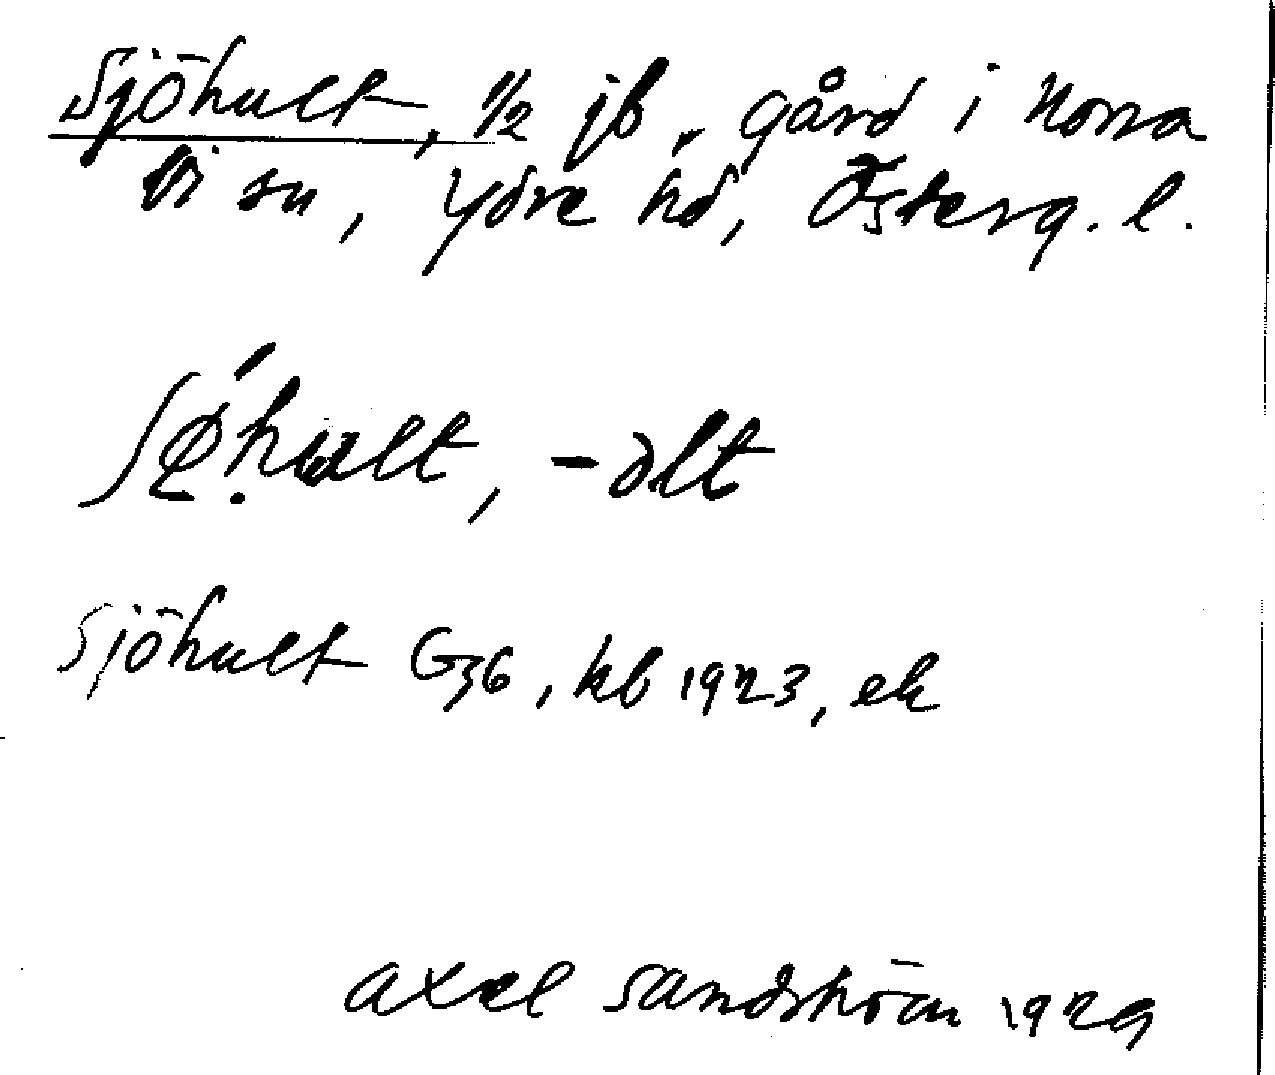 Sjöhult, 1/2 jb, gård i Norra
Vi sn, Ydre hd, Österg. l.
ʃǿ̨hult, -ɔlt
Sjöhult G36, kb 1923, ek
Axel Sandström 1929